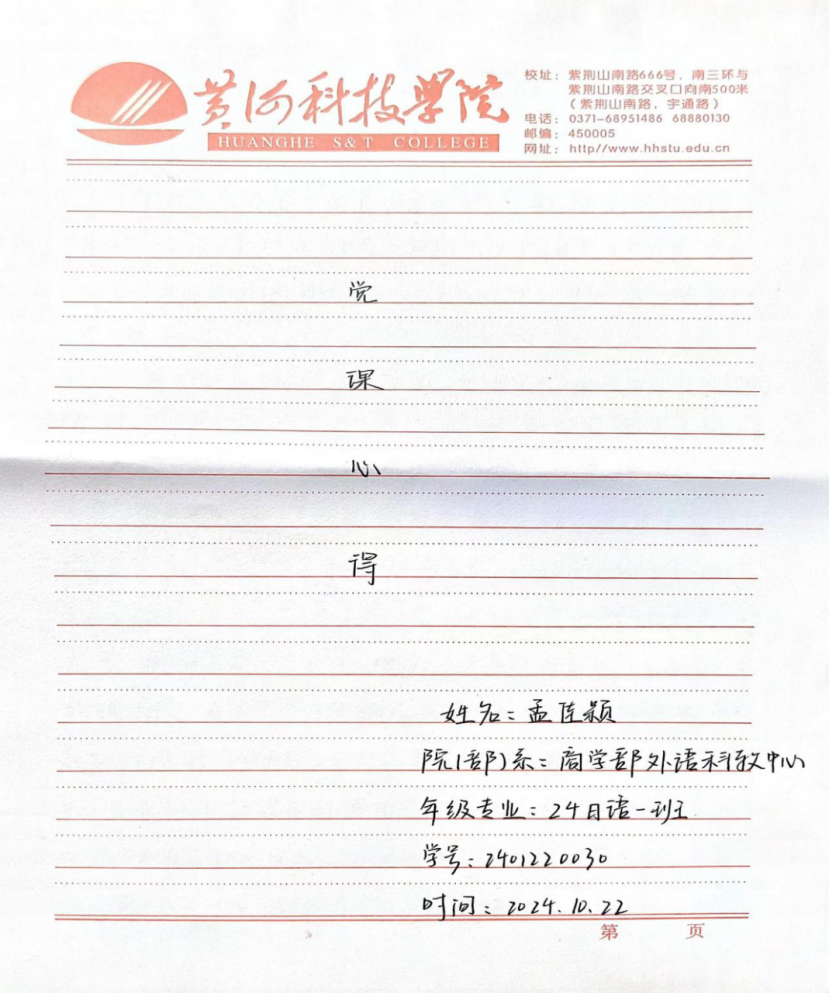 黄河科技学院
HUANGHE S&T COLLEGE
校址：紫荆山南路666号，南三环与
紫荆山南路交叉口向南500米
（紫荆山南路，宇通路）
电话：0371-68951486 68880130
邮编：450005
网址：http//www.hhstu.edu.cn
党
课
心
得
姓名：孟佳颖
院(部)系：商学部外语科教中心
年级专业：24日语一班
学号：2401220030
时间：2024.10.22
第 页